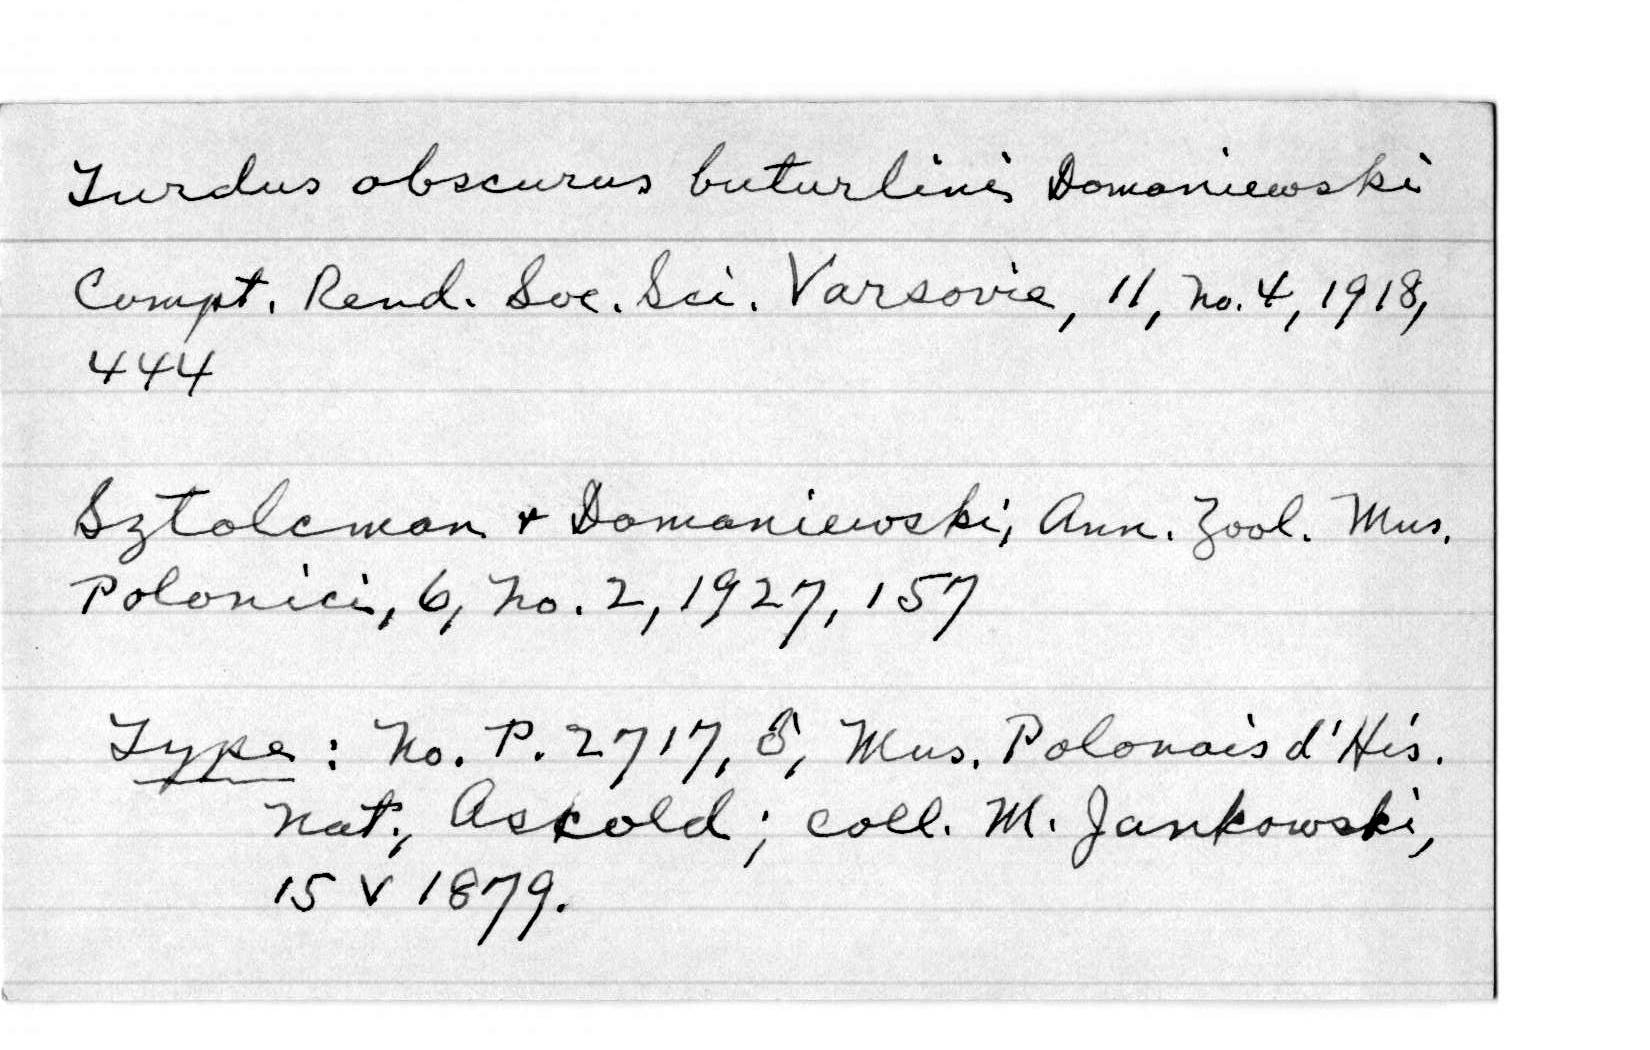 Turdus obscurus buturlini, Domaniewski
Compt. Rend. Soc. Sci. Varsovie, 11, no. 4, 1918,
444
Sztolcman + Domaniewski, Ann. Zool. Mus.
Polonici, 6, no. 2, 1927, 157
Type: No. P. 2717, ♂, Mus. Polonais d'His.
Nat., Askold; coll. M. Jankowski,
15 V 1879.